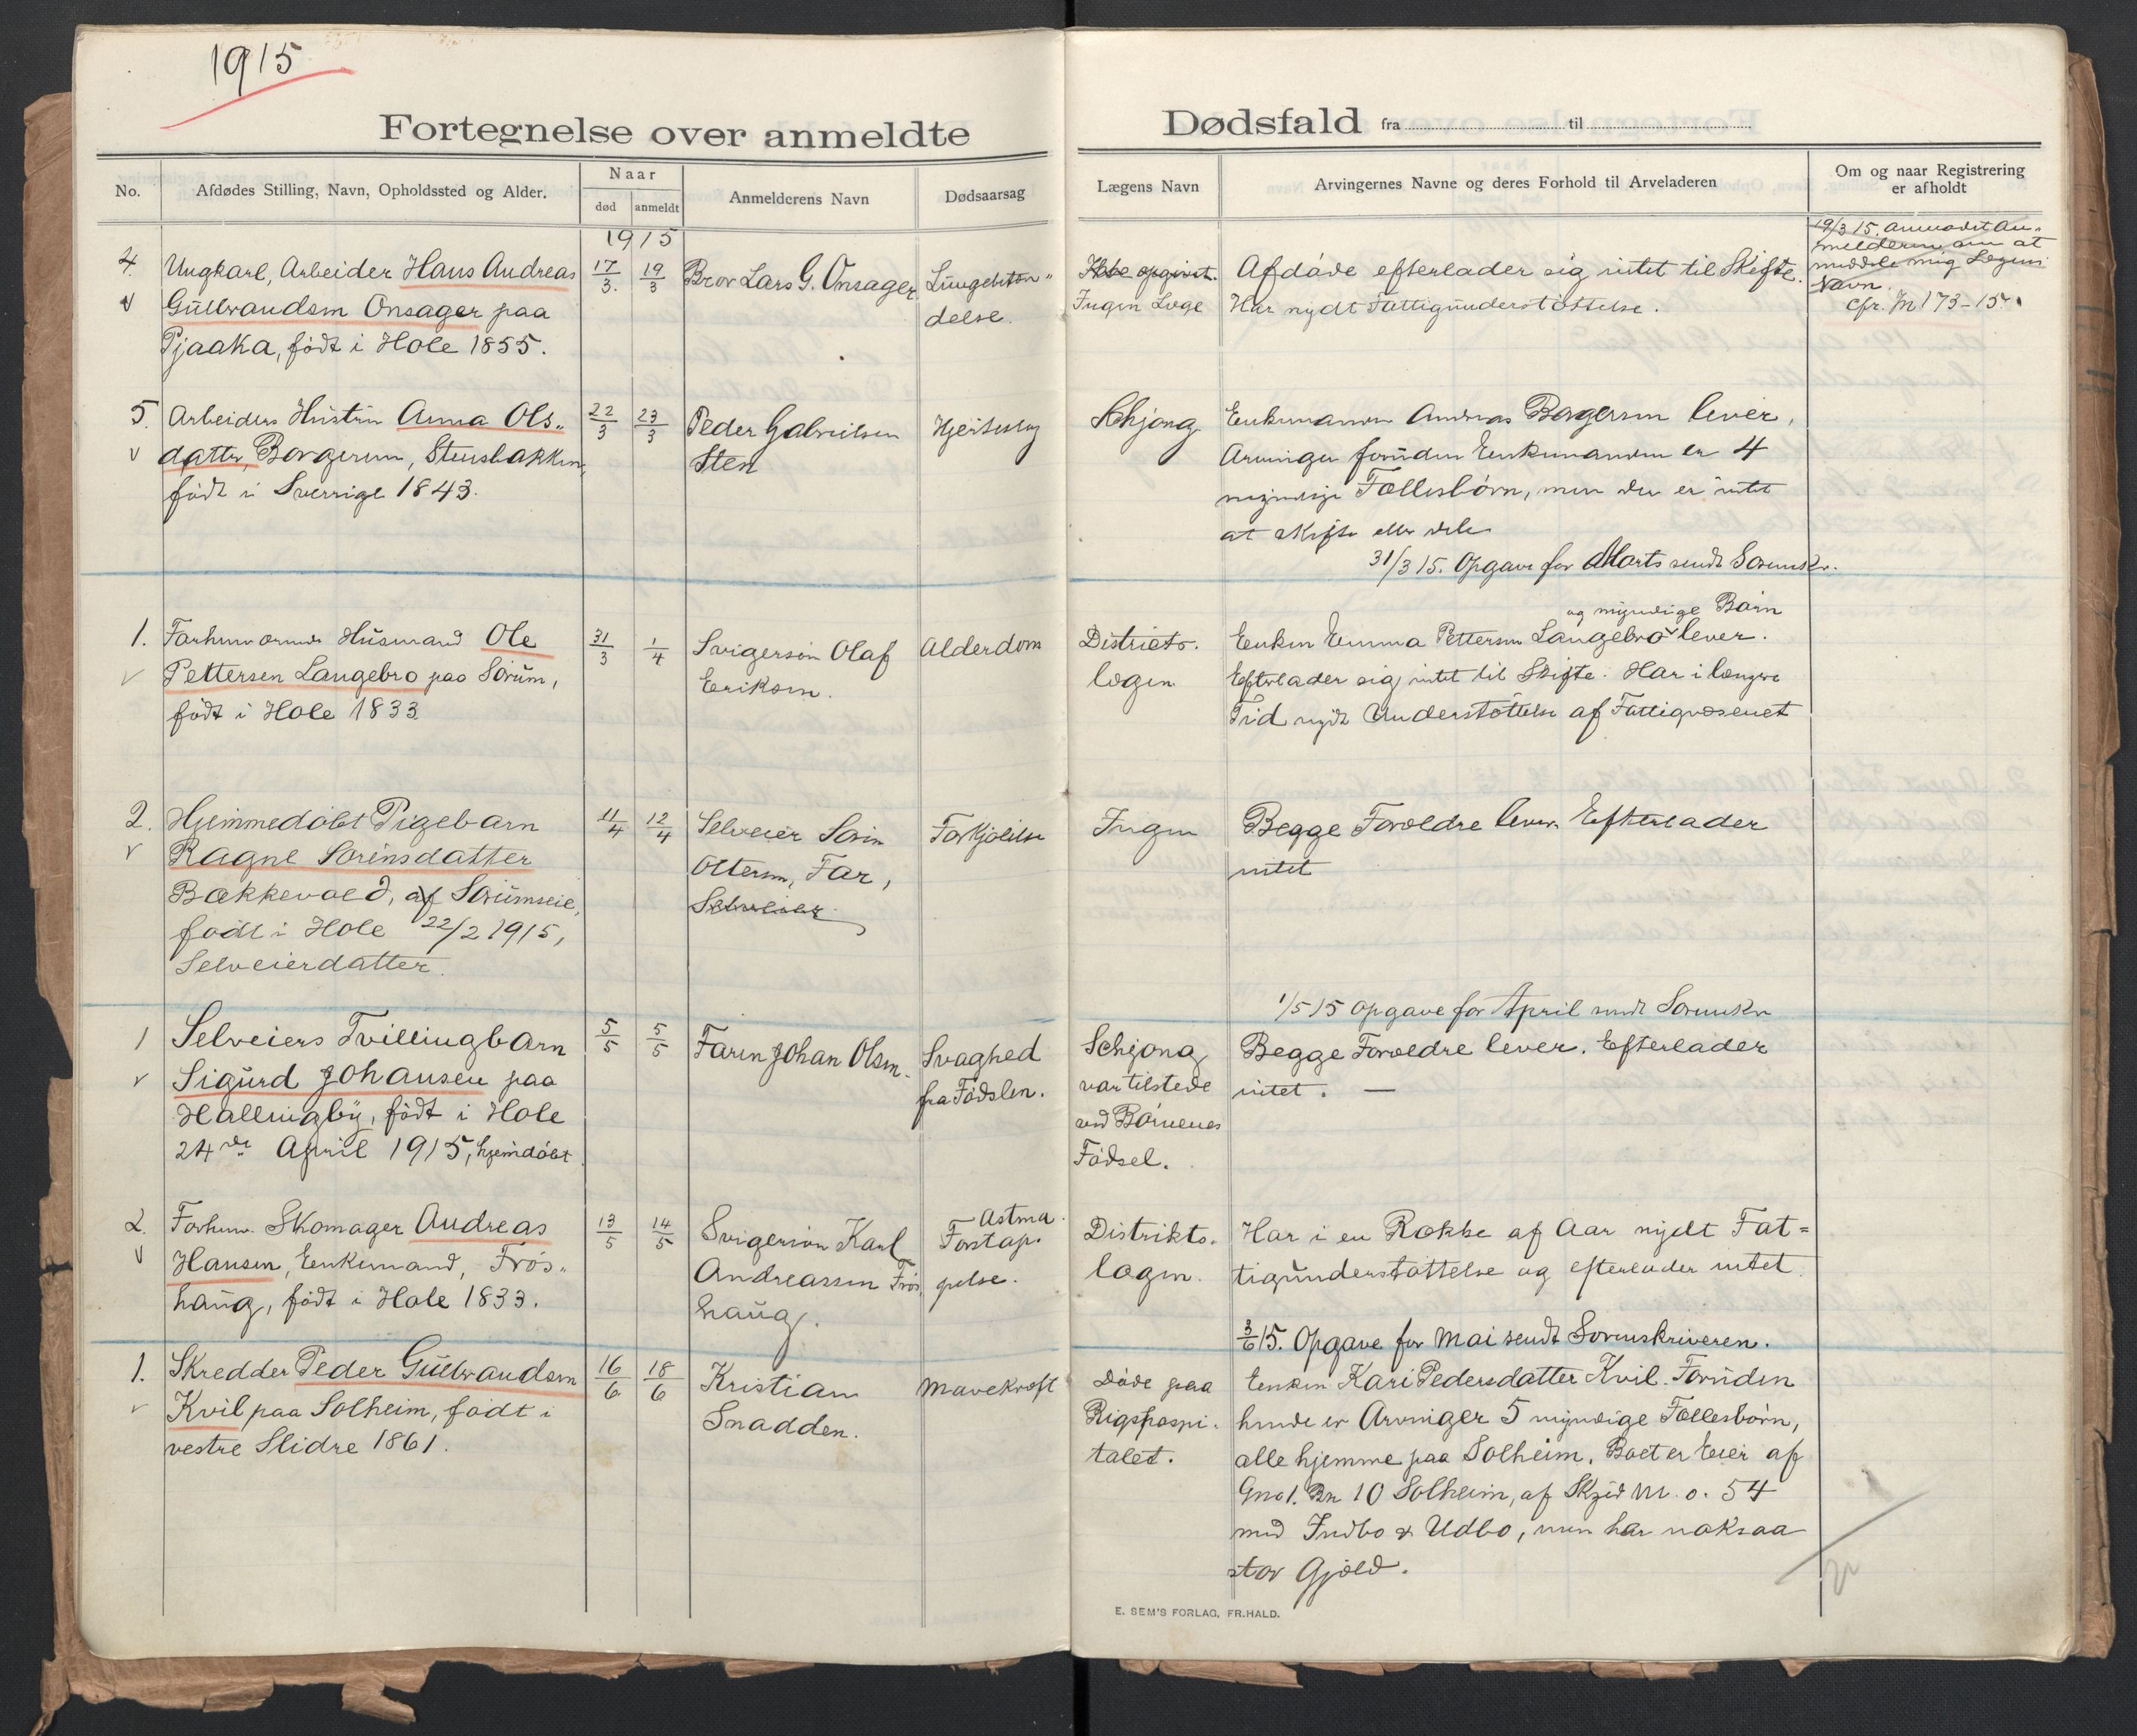 1915
Fortegnelse over anmeldte
Dødsfald fra til
No.
Afdødes Stilling, Navn, Opholdssted og Alder.
Naar
død
anmeldt
Anmelderens Navn
Dødsaarsag
Lægens Navn
Arvingernes Navne og deres Forhold til Arveladeren
Om og naar Registrering
er afholdt
1915
4.
Ungkarl, Arbeider Hans Andreas
Gulbrandsen Onsager paa
Pjaaka, født i Hole 1855.
17/3.
19/3
Bror Lars G. Onsager
Lungebetæn"
delse.
Ikke opgivet.
Ingen Læge
Afdøde efterlader sig intet til Skifte.
Har nydt Fattigunderstøttelse.
19/3 15. anmodet An-
melderen om at
meddele mig Lægens
Navn.
Cfr. M 173-15.
5.
Arbeiders Hustru Anna Ols-
datter, Borgersen, Stensbakken,
født i Sverrige 1843.
22/3
23/3
Peder Gabrielsen
Sten
Hjerteslag
Schjong
Enkemanden Andreas Borgersen lever,
Arvinger foruden Enkemanden er 4
myndige Fællesbørn, men der er intet
at skifte eller dele
31/3 15. Opgave for Marts sendt Sorenskr.
1.
Forhenværende Husmand Ole
Pettersen Langebro paa Sørum,
født i Hole 1833
31/3
1/4
Svigersøn Olaf
Eriksen.
Alderdom
Districts-
lægen
og myndige Børn
Enken Emma Pettersen Langebro lever.
Efterlader sig intet til Skifte. Har i længere
Tid nydt Understøttelse af Fattigvæsenet
2.
Hjemmedøbt Pigebarn
Ragne Sørinsdatter
Bakkevold, af Sørumseie,
født i Hole 22/2 1915,
Selveierdatter.
11/4
12/4
Selveier Sørin
Ottersen, Far,
Selveier
Forkjølelse
Ingen
Begge Forældre lever. Efterlader
intet
1/5 15 Opgave for April sendt Sorenskr
1
Selveiers Tvillingbarn
Sigurd Johansen paa
Hallingby, født i Hole
24de April 1915, hjemdøbt
5/5
5/5
Faren Johan Olsen.
Svaghed
fra Fødslen.
Schjong
var tilstede
ved Børnenes
Fødsel.
Begge Forældre lever. Efterlader
intet. —
2.
Forhenv. Skomager Andreas
Hansen, Enkemand, Frøs-
haug, født i Hole 1833.
13/5
14/5
Svigersøn Karl
Andreassen Frøs
haug.
Astma.
Forstop-
pelse.
Distrikts-
lægen.
Har i en Række af Aar nydt Fat=
tigunderstøttelse og efterlader intet
3/6 15. Opgave for Mai sendt Sorenskriveren.
1.
Skredder Peder Gulbrandsen
Kvil paa Solheim, født i
vestre Slidre 1861.
16/6
18/6
Kristian
Snadden.
Mavekræft
Døde paa
Rigshospi-
talet.
Enken Kari Pedersdatter Kvil. Foruden
hende er Arvinger 5 myndige Fællesbørn,
alle hjemme paa Solheim. Boet er Eier af
Gno 1. Bn 10 Solheim, af Skyld M. o. 54
med Indbo & Udbo, men har noksaa
stor Gjæld.
E. SEM'S FORLAG, FR.HALD.